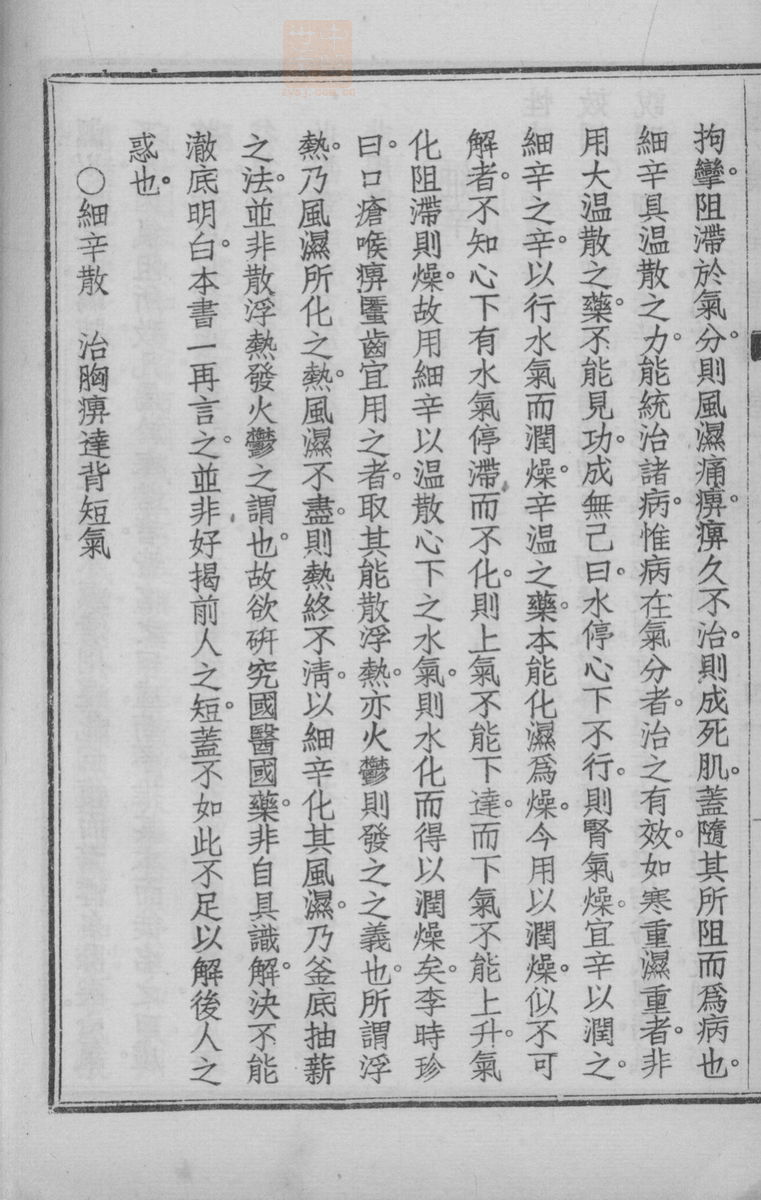 拘攣。阻滯於氣分。則風濕痛痹。痹久不治。則成死肌。蓋隨其所阻而爲病也。
細辛具溫散之力。能統治諸病。惟病在氣分者。治之有效。如寒重濕重者。非
用大溫散之藥。不能見功。成無己曰。水停心下不行。則腎氣燥。宜辛以潤之。
細辛之辛。以行水氣而潤燥。辛溫之藥。本能化濕爲燥。今用以潤燥。似不可
解者。不知心下有水氣停滯而不化。則上氣不能下達。而下氣不能上升。氣
化阻滯則燥。故用細辛以溫散心下之水氣。則水化而得以潤燥矣。李時珍
曰。口瘡喉痹䘌齒宜用之者。取其能散浮熱。亦火鬱則發之之義也。所謂浮
熱。乃風濕所化之熱。風濕不盡。則熱終不淸。以細辛化其風濕。乃釜底抽薪
之法。並非散浮熱發火鬱之謂也。故欲硏究國醫國藥。非自具識解。決不能
澈底明白。本書一再言之。並非好揭前人之短。蓋不如此不足以解後人之
惑也。
○細辛散　治胸痹達背短氣